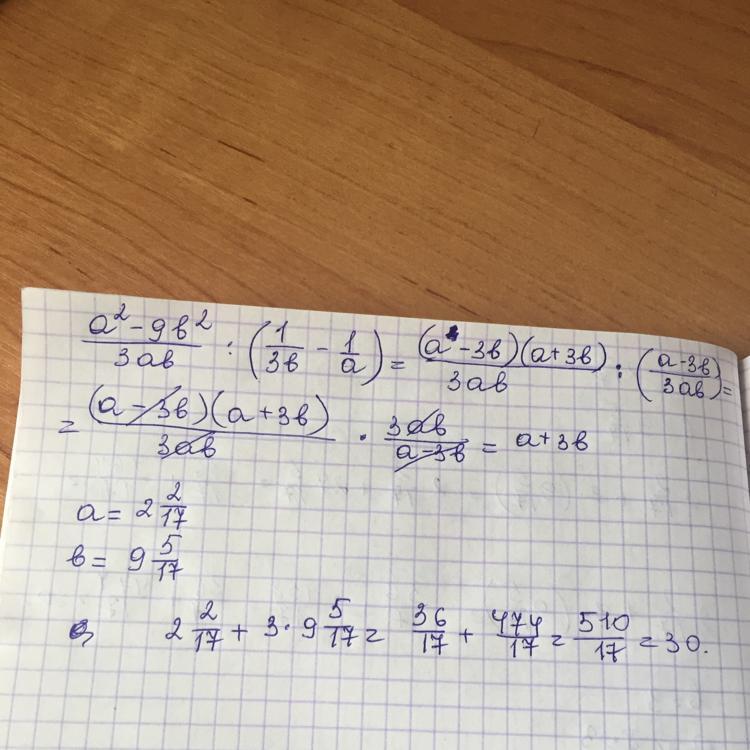 (a² - 9b²)/(3ab) : (1/(3b) - 1/a) = ((a - 3b)(a + 3b))/(3ab) : ((a - 3b)/(3ab)) =
= ((a - 3b)(a + 3b))/(3ab) · (3ab)/(a - 3b) = a + 3b
a = 2 2/17
b = 9 5/17
2 2/17 + 3 · 9 5/17 = 36/17 + 474/17 = 510/17 = 30.